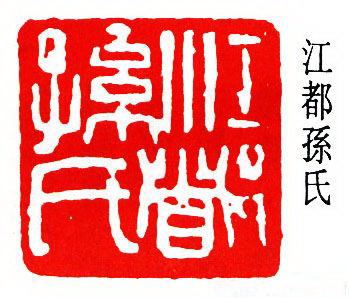 江都
孫氏
江都孫氏